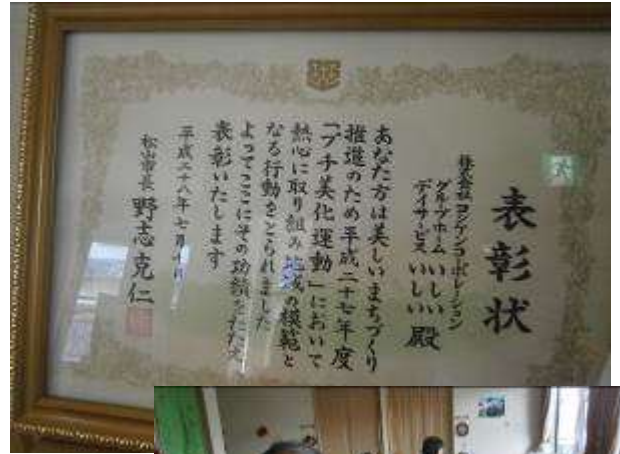 表彰状
株式会社ヨシケンコーポレーション
グループホームいしい
デイサービスいしい
殿
あなた方は美しいまちづくり
推進のため平成二十七年度
「プチ美化運動」において
熱心に取り組み地域の模範と
なる行動をとられました
よってここにその功績をたたえ
表彰いたします
平成二十八年七月
松山市長 野志克仁